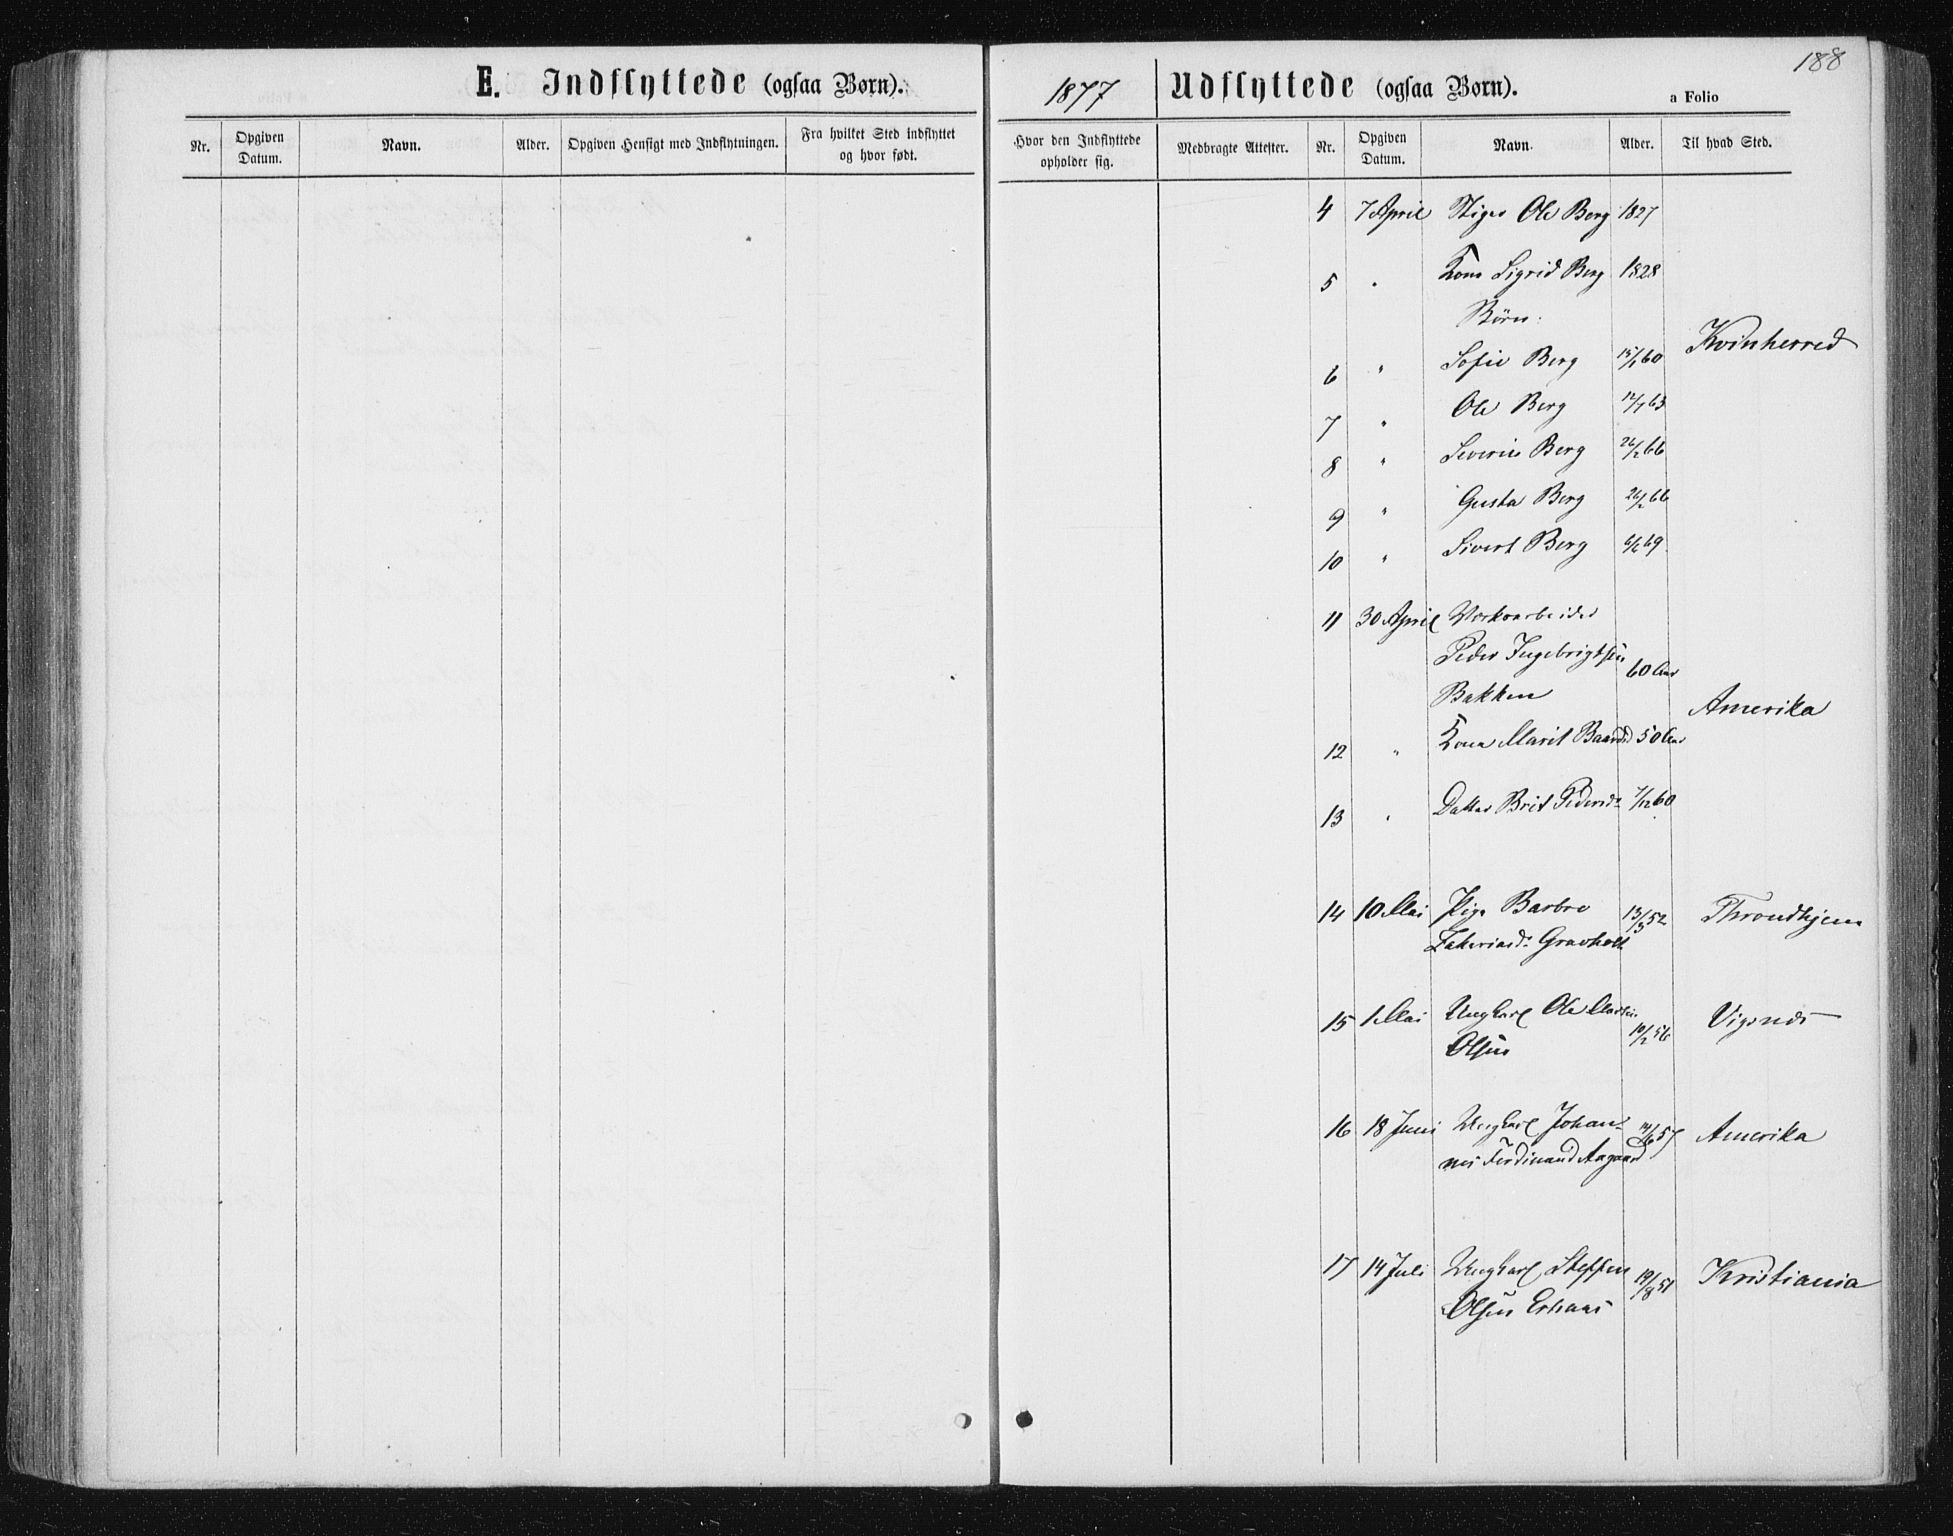 188
E. Indflyttede (ogsaa Børn).
1877
Udflyttede (ogsaa Børn).
a Folio
Nr. Opgiven Datum. Navn. Alder. Opgiven Hensigt med Indflytningen. Fra hvilket Sted indflyttet og hvor født.
Hvor den Indflyttede opholder sig. Medbragte Attester. Nr. Opgiven Datum. Navn. Alder. Til hvad Sted.
4 7 April Stiger Ole Berg 1827
5 " Kone Sigrid Berg 1828
Børn:
Kvinherred
6 " Sofie Berg 60
7 " Ole Berg 12/7 63
8 " Severin Berg 26/2 66
9 " Gusta Berg 26/2 66
10 " Sivert Berg 6/6 69
11 30 April Værkarbeider
Peder Ingebrigtsen 60 Aar
Bakken
Amerika
12 " Kone Marit Baardsd 50 Aar
13 " Datter Brit Pedersd. 7/12 60
14 10 Mai Pige Barbro 13/3 52 Throndhjem
Zakariasd. Gravholt
15 1 Mai Ungkarl Ole Martin 10/2 56 Vigsnæs
Olsen
16 18 Juni Ungkarl Johan- 57 Amerika
nes Ferdinand Aagaard
17 14 Juli Ungkarl Steffen 19/8 51 Kristiania
Olsen